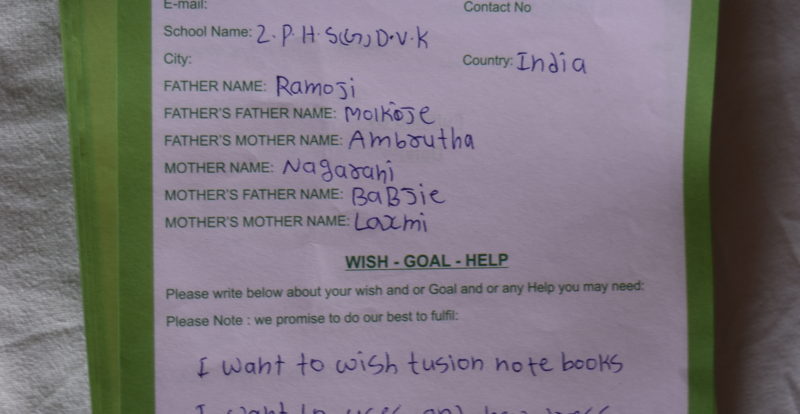 E-mail: Contact No
School Name: Z.P.H.S(G) D.V.K
City: Country: India
FATHER NAME: Ramoji
FATHER'S FATHER NAME: Molkoje
FATHER'S MOTHER NAME: Ambrutha
MOTHER NAME: Nagarani
MOTHER'S FATHER NAME: BaBjie
MOTHER'S MOTHER NAME: Laxmi
WISH - GOAL - HELP
Please write below about your wish and or Goal and or any Help you may need:
Please Note : we promise to do our best to fulfil:
I want to wish tusion note books
I want